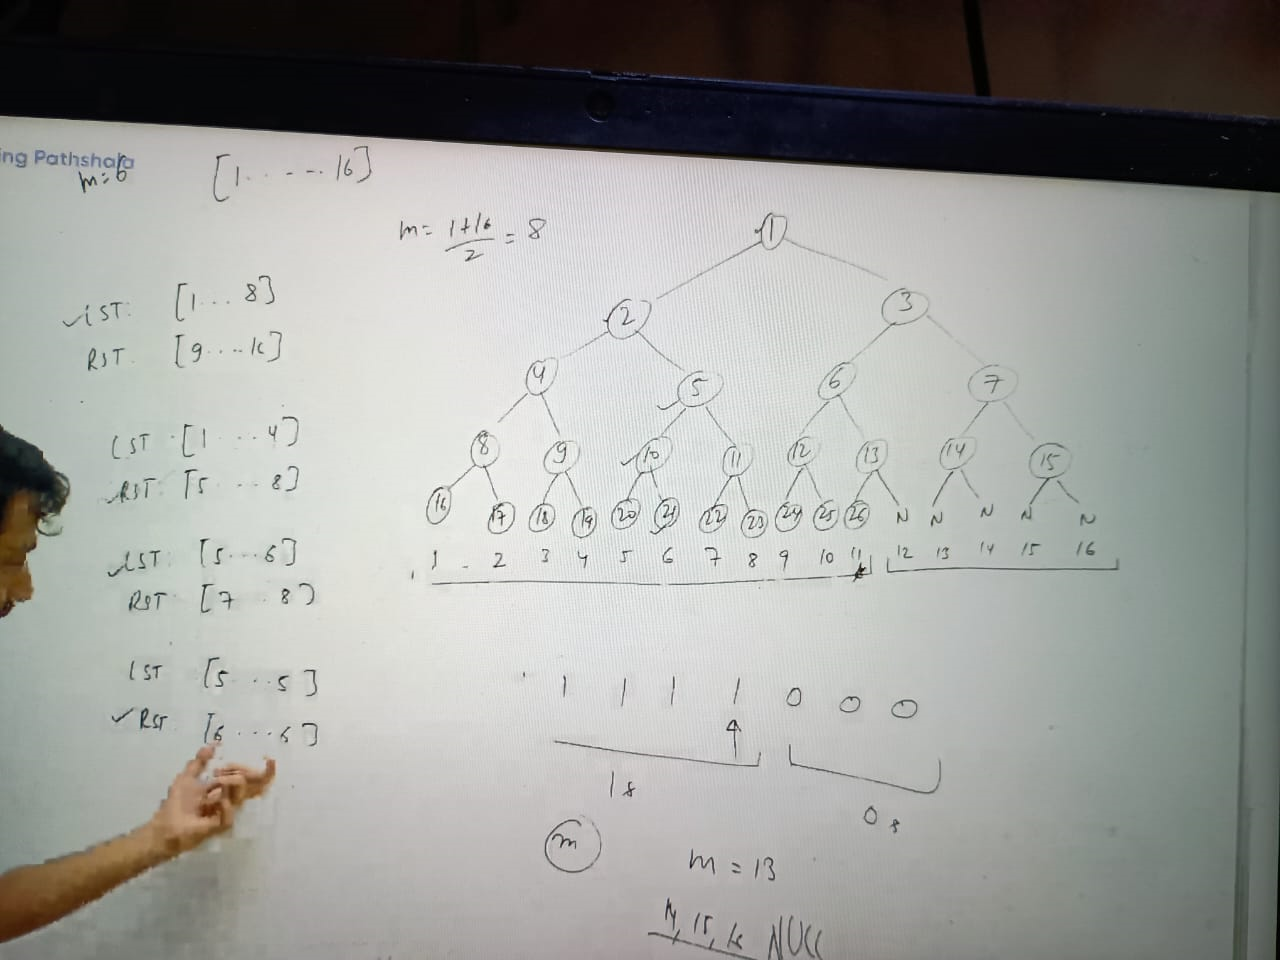 ing Pathshala
m=6
[1.....16]
m= 1+16/2 = 8
LST: [1...8]
RST. [9....16]
LST [1...4]
RST: [5...8]
LST: [5...6]
RST [7..8]
LST [5...5]
RST [6...6]
1
2 3
4 5 6 7
8 9 10 11 12 13 14 15
16 17 18 19 20 21 22 23 24 25 26 N N N N N
1 2 3 4 5 6 7 8 9 10 11 12 13 14 15 16
1 1 1 1 0 0 0
1s
0s
m
m = 13
14, 15, 16 NULL